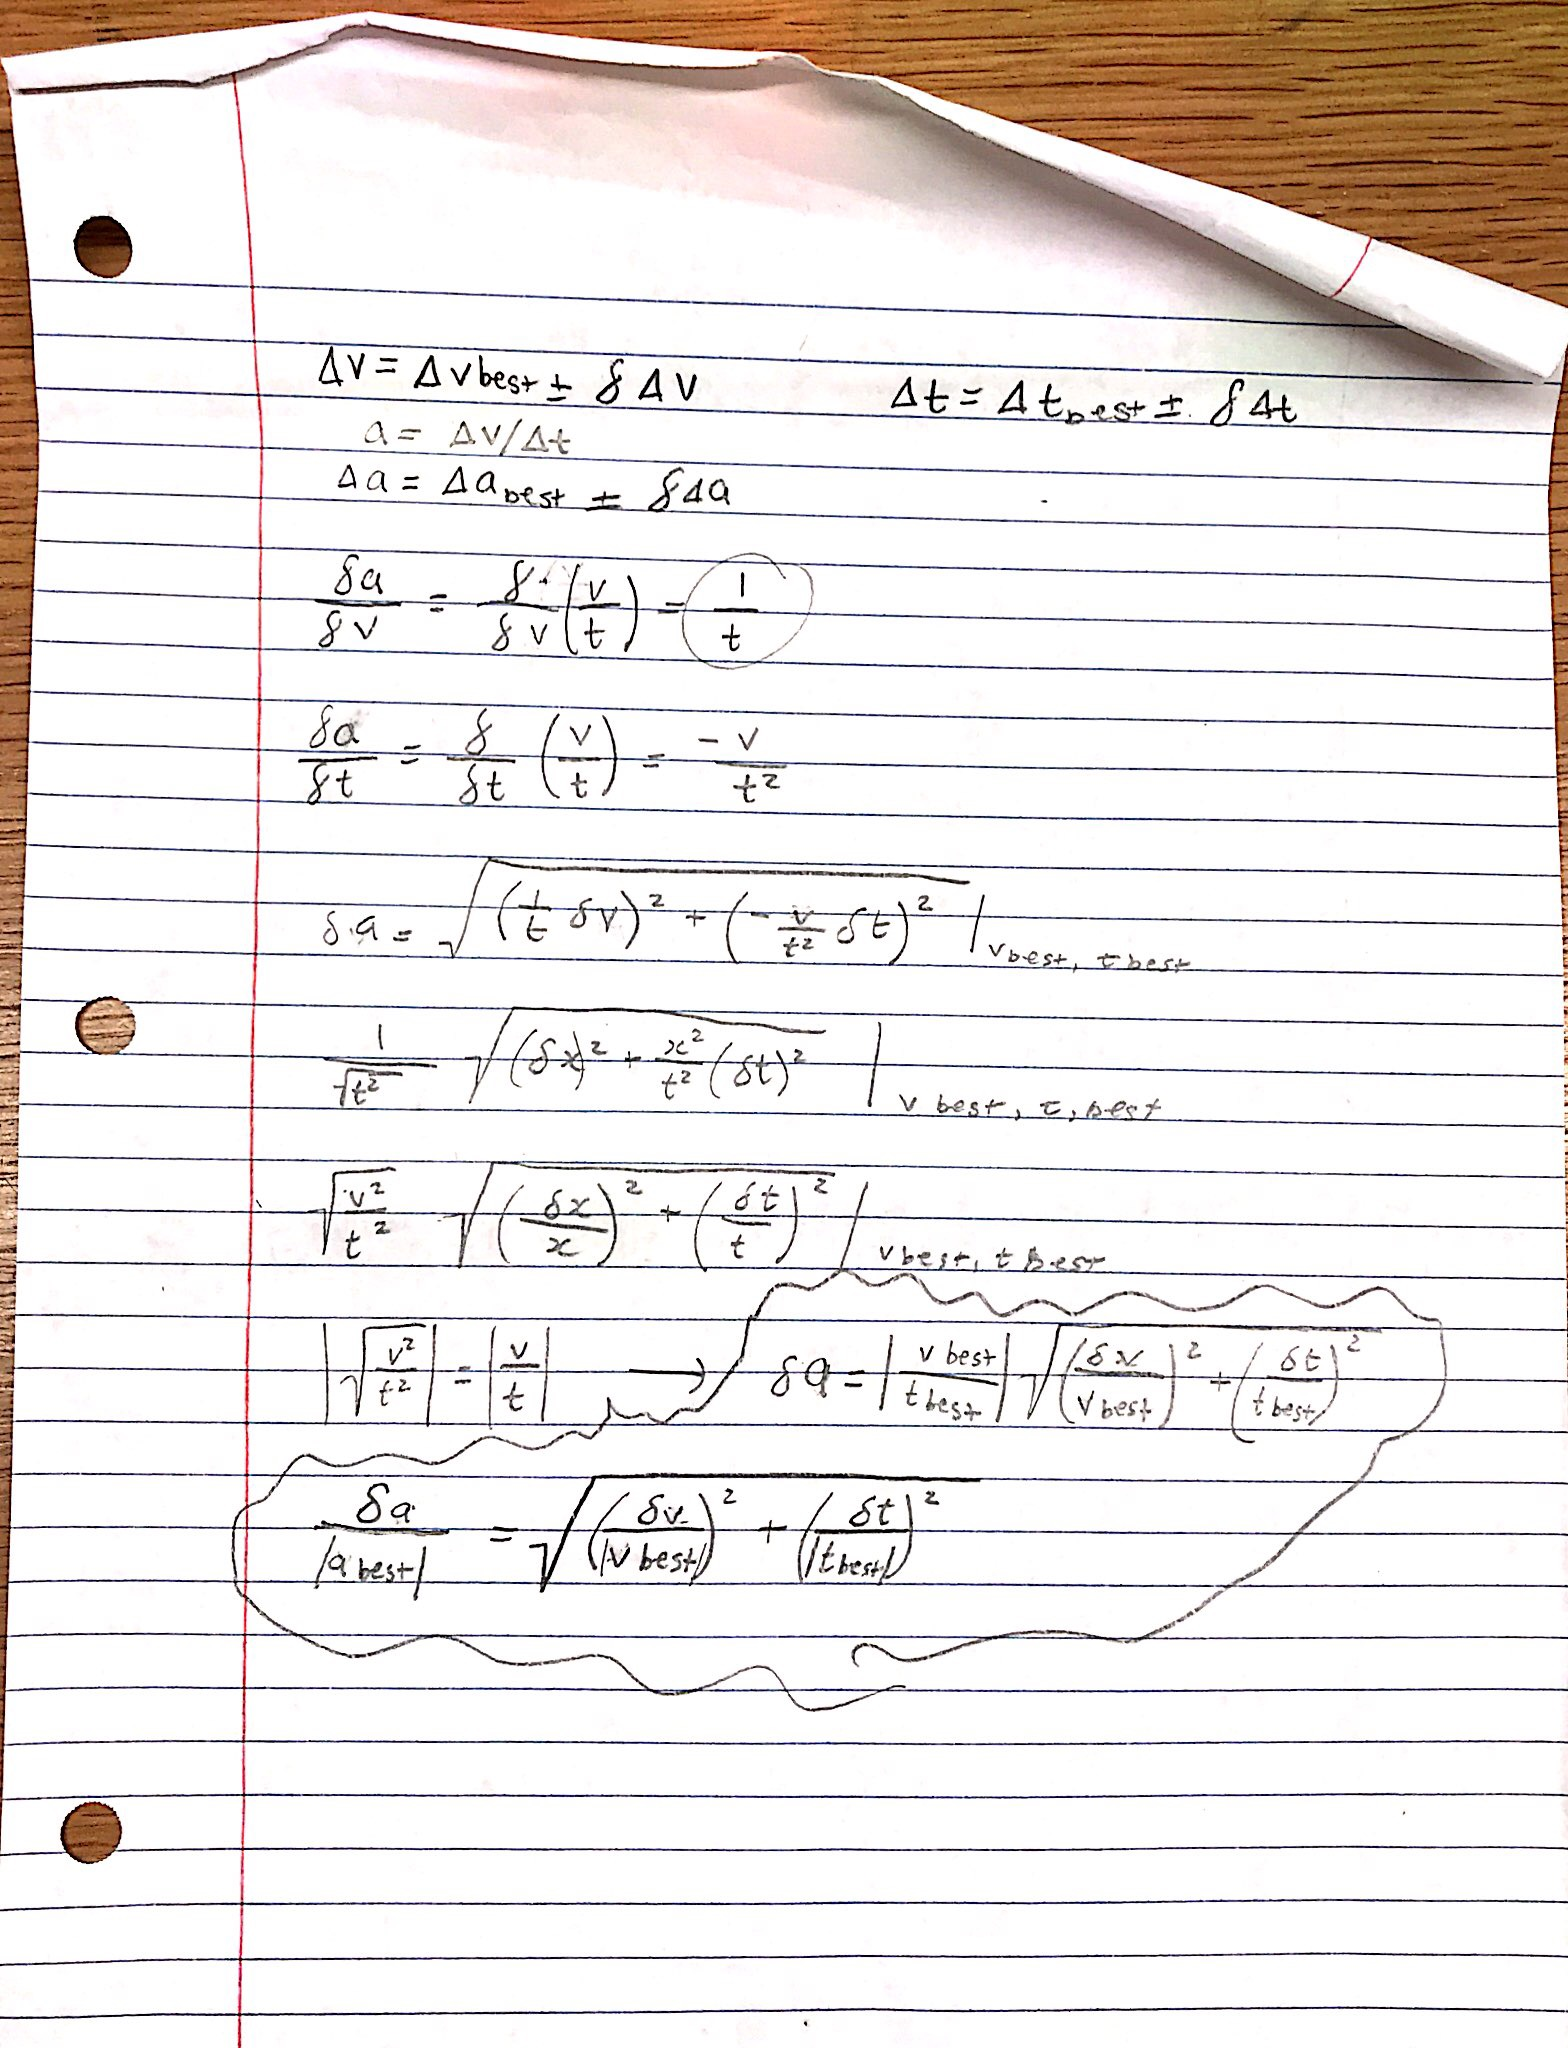 Δv = Δv best ± δΔv Δt = Δt best ± δΔt
a = Δv/Δt
Δa = Δa best ± δΔa
δa/δv = δ/δv (v/t) = 1/t
δa/δt = δ/δt (v/t) = -v/t²
δa = √((1/t δv)² + (-v/t² δt)²) | v best, t best
1/√t² √((δx)² + x²/t² (δt)²) | v best, t, best
√(v²/t²) √((δx/x)² + (δt/t)²) | v best, t Best
|√(v²/t²)| = |v/t| → δa = |v best/t best| √((δv/v best)² + (δt/t best)²)
δa/|a best| = √((δv/|v best|)² + (δt/|t best|)²)